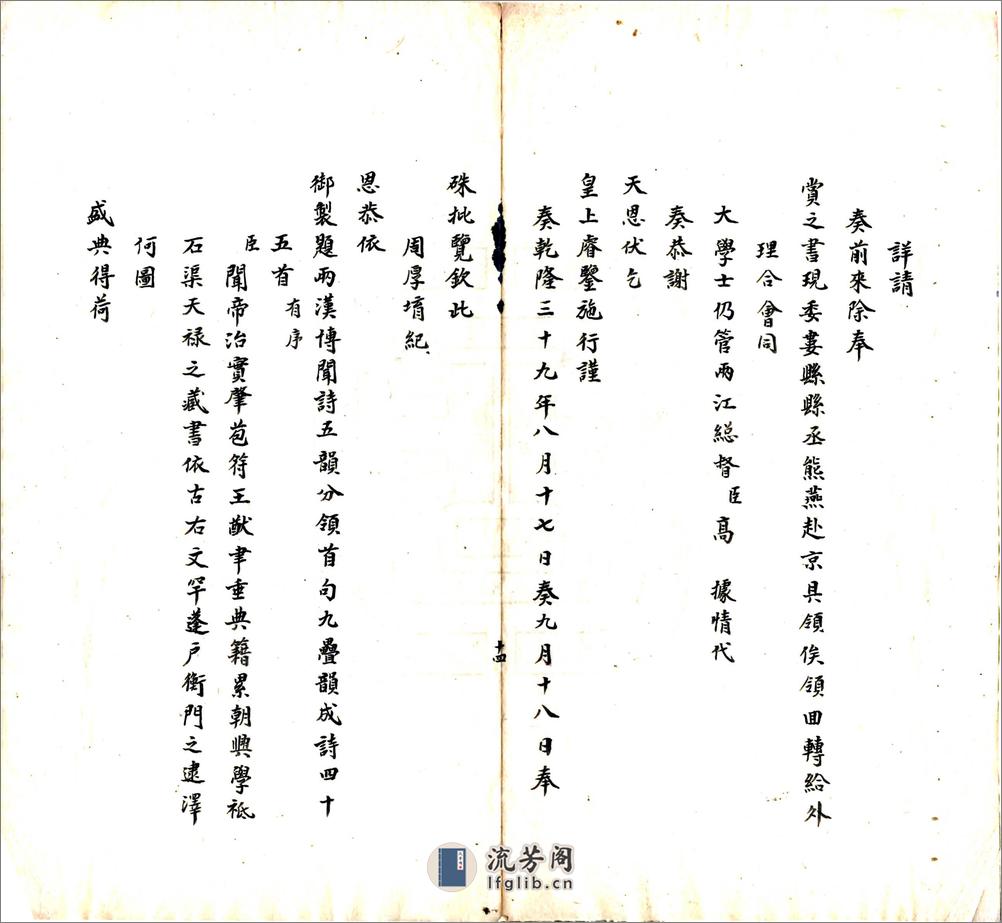 詳請
奏前來除奉
賞之書現委婁縣縣丞熊燕赴京具領俟領回轉給外
理合會同
大學士仍管兩江總督臣高 據情代
奏恭謝
天恩伏乞
皇上睿鑒施行謹
奏乾隆三十九年八月十七日奏九月十八日奉
硃批覽欽此
周厚堉紀
恩恭依
御製題兩漢博聞詩五韻分領首句九疊韻成詩四十
五首有序
臣聞帝治實肇苞符王猷聿垂典籍累朝興學祗
石渠天祿之藏書依古右文罕蓬戶衡門之逮澤
何圖
盛典得荷
十四
流芳阁
lfglib.cn